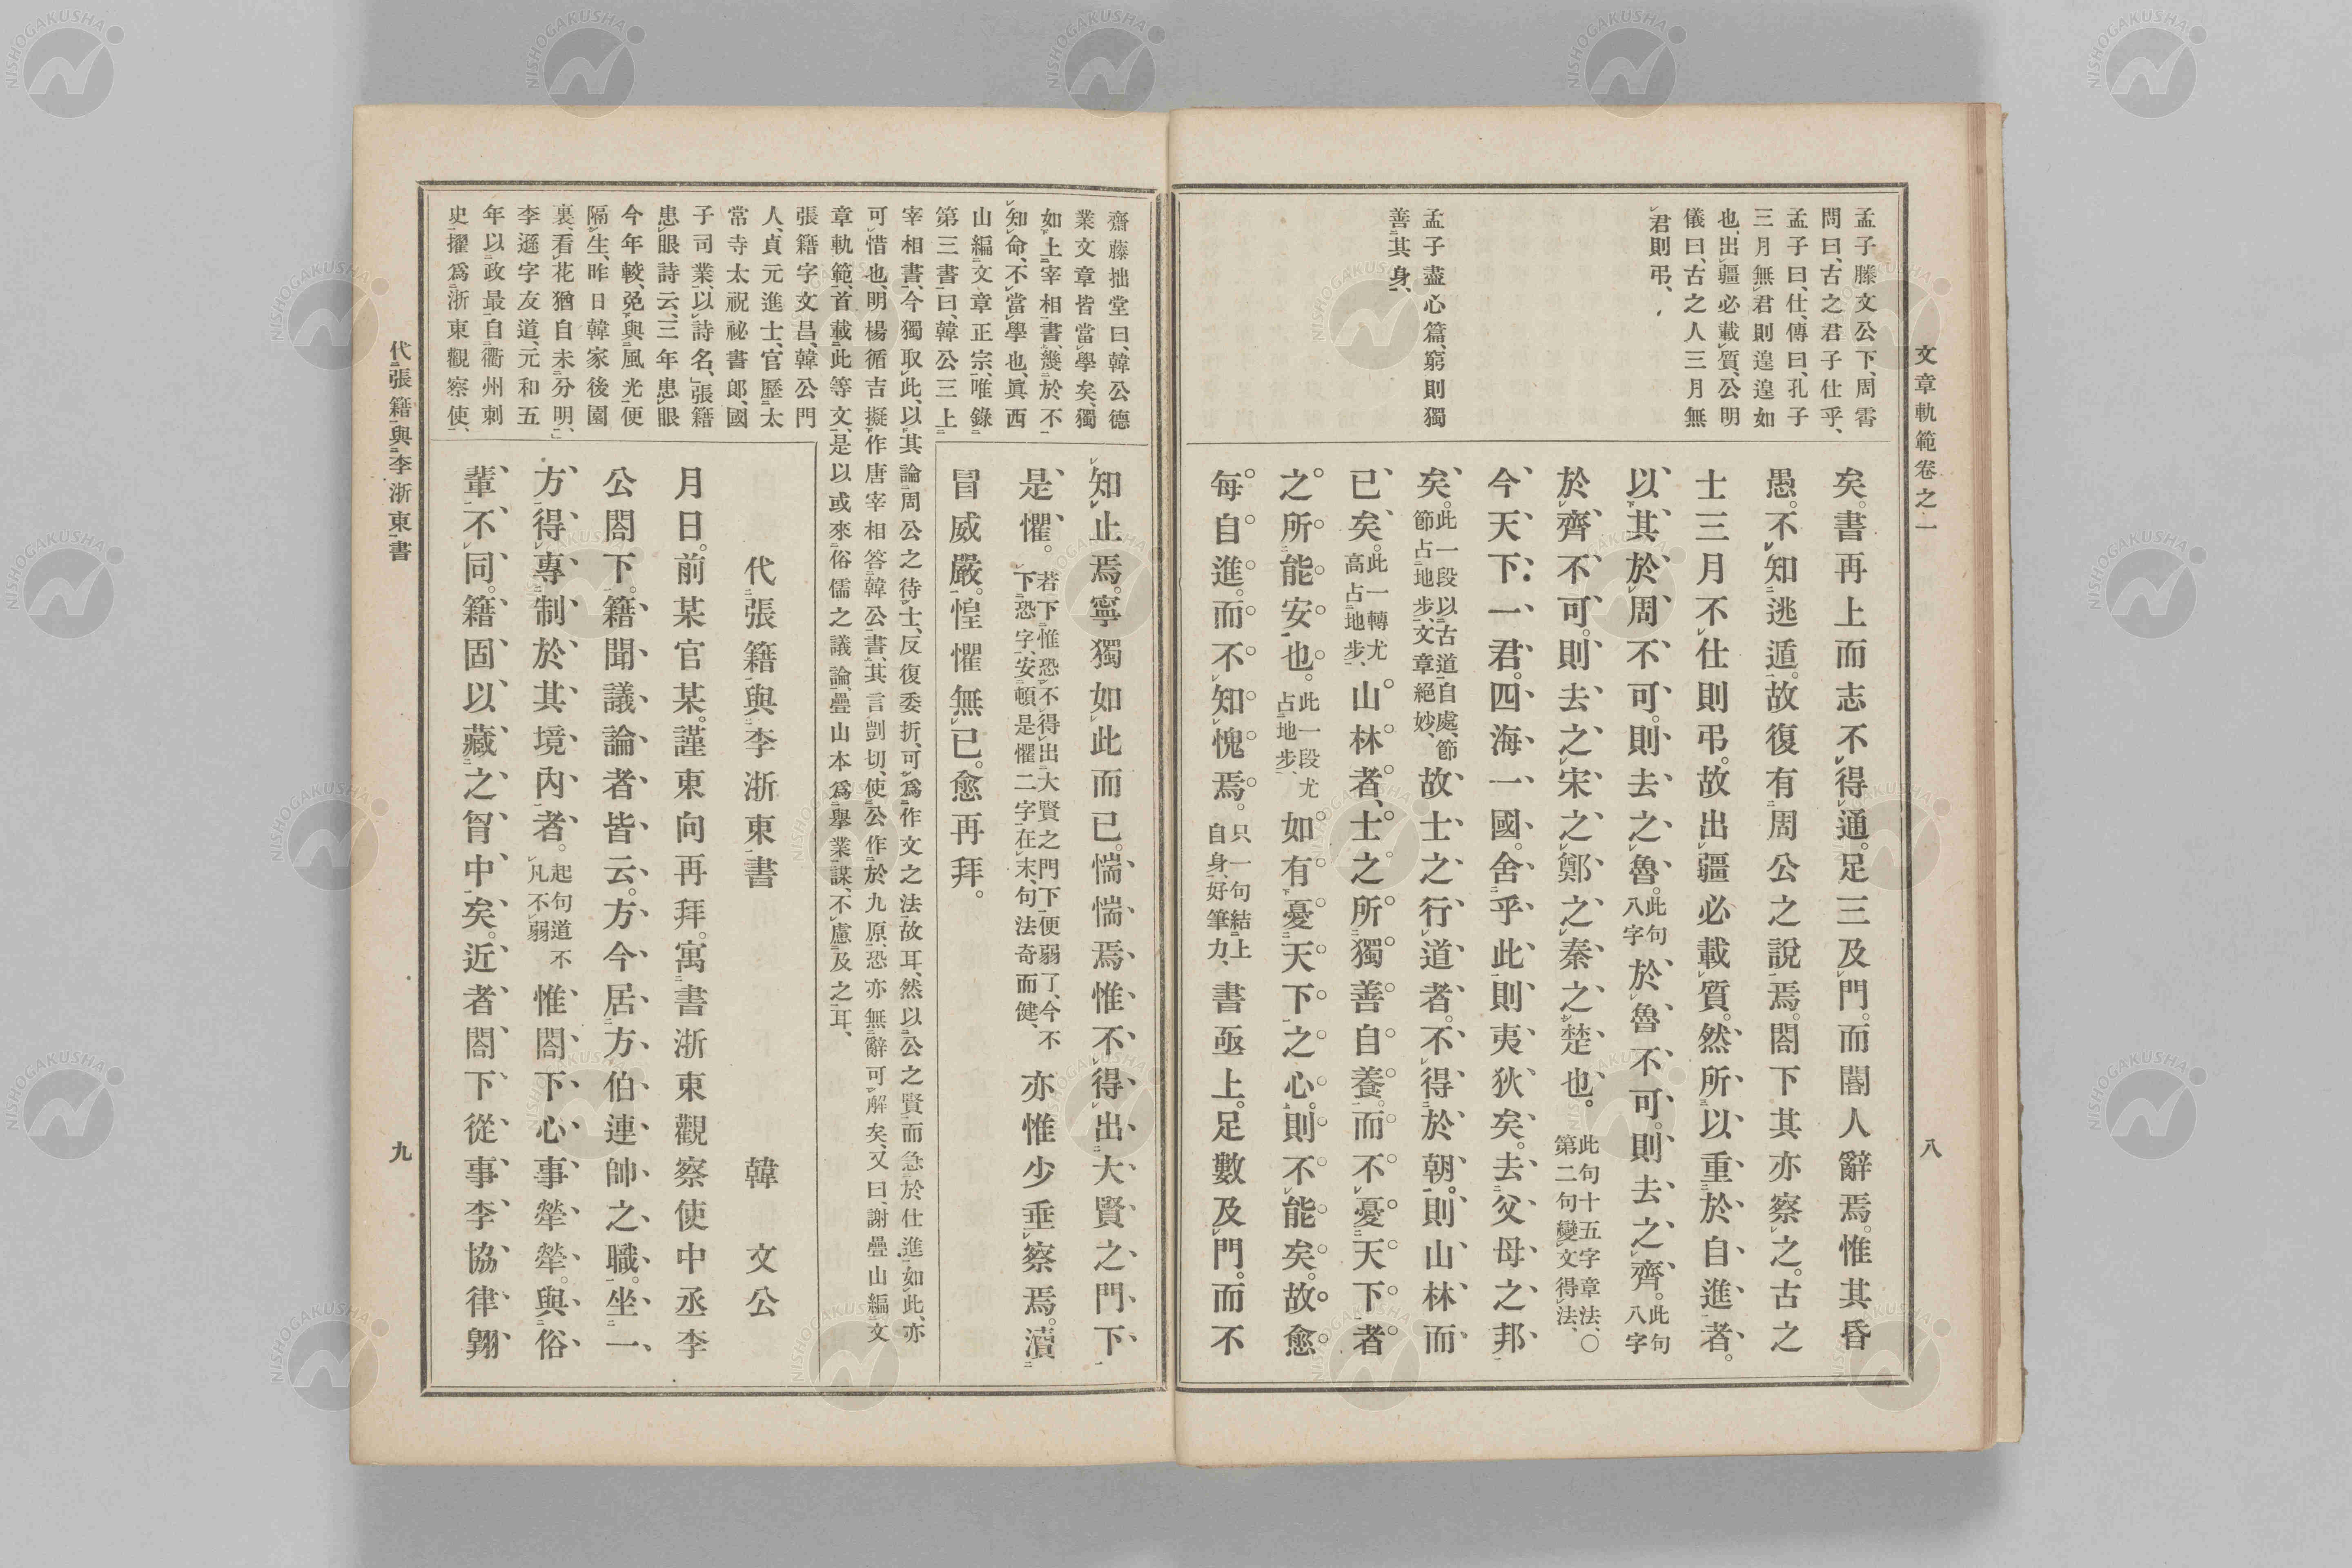 文章軌範卷之一
八
孟子滕文公下、周霄
問曰、古之君子仕乎、
孟子曰、仕、傳曰、孔子
三月無君則遑遑如
也、出疆必載質、公明
儀曰、古之人三月無
君則弔、
孟子盡心篇、窮則獨
善其身、
矣。書再上而志不得通。足三及門。而閽人辭焉。惟其昏
愚。不知逃遁。故復有周公之說焉。閤下其亦察之。古之
士三月不仕則弔。故出疆必載質。然所以重於自進者。
以其於周不可。則去之魯。此句八字於魯不可。則去之齊。此句八字
於齊不可。則去之宋之鄭之秦之楚也。此句十五字章法、〇第二句變文得法、
今天下一君。四海一國。舍乎此則夷狄矣。去父母之邦
矣。此一段以古道自處、節節占地步、文章絕妙、故士之行道者。不得於朝。則山林而
已矣。此一轉尤高占地步、山林者、士之所獨善自養。而不憂天下者
之所能安也。此一段尤占地步、如有憂天下之心。則不能矣。故愈
每自進。而不知愧焉。只一句結上自身、好筆力、書亟上。足數及門。而不
齋藤拙堂曰、韓公德
業文章皆當學矣、獨
如上宰相書、幾於不
知命、不當學也、眞西
山編文章正宗、唯錄
第三書曰、韓公三上
宰相書、今獨取此、以其論周公之待士、反復委折、可爲作文之法故耳、然以公之賢而急於仕進如此、亦
可惜也、明楊循吉擬作唐宰相答韓公書、其言剴切、使公作於九原、恐亦無辭可解矣、又曰、謝疊山編文
章軌範、首載此等文、是以或來俗儒之議論、疊山本爲舉業謀、不慮及之耳、
張籍字文昌、韓公門
人、貞元進士、官歷太
常寺太祝祕書郎、國
子司業、以詩名、張籍
患眼詩云、三年患眼
今年較、免與風光便
隔生、昨日韓家後園
裏、看花猶自未分明、
李遜字友道、元和五
年以政最、自衢州刺
史擢爲浙東觀察使、
知止焉。寧獨如此而已。惴惴焉惟不得出大賢之門下
是懼。若下惟恐不得出大賢之門下便弱了、今不下恐字、安頓是懼二字在末、句法奇而健、亦惟少垂察焉。瀆
冒威嚴。惶懼無已。愈再拜。
代張籍與李浙東書　韓文公
月日。前某官某。謹東向再拜。寓書浙東觀察使中丞李
公閤下。籍聞議論者皆云。方今居方伯連帥之職。坐一
方得專制於其境內者。起句道不凡不弱惟閤下心事犖犖。與俗
輩不同。籍固以藏之胷中矣。近者閤下從事李協律翺
代張籍與李浙東書
九